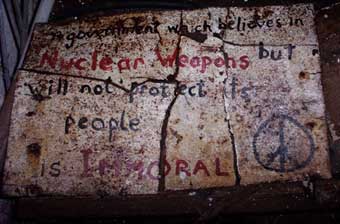 a government which believes in
Nuclear Weapons but
will not protect its
people
is IMMORAL